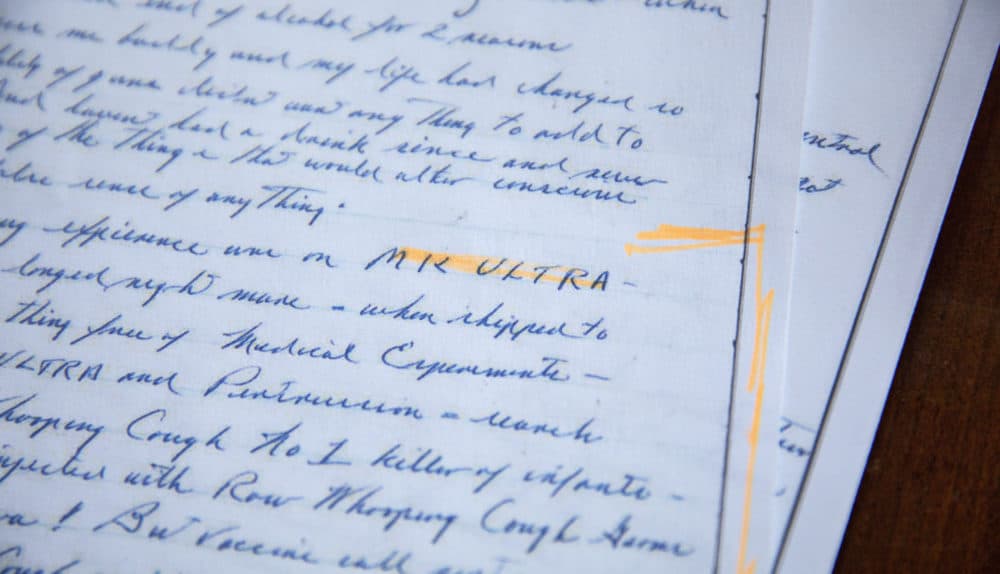 within
of alcohol for 2 reasons
me buddy and my life had changed so
of gona didnt want any Thing to add to
And havent had a drink since and never
of the Things that would alter conscious
sence of any Thing.
expierence was on MK ULTRA -
longed night mare - when shipped to
thing free of Medical Experiments -
ULTRA and - search
hooping Cough No 1 killer of infants -
njected with Raw Whooping Cough Germs
! But Vaccine
ntrol